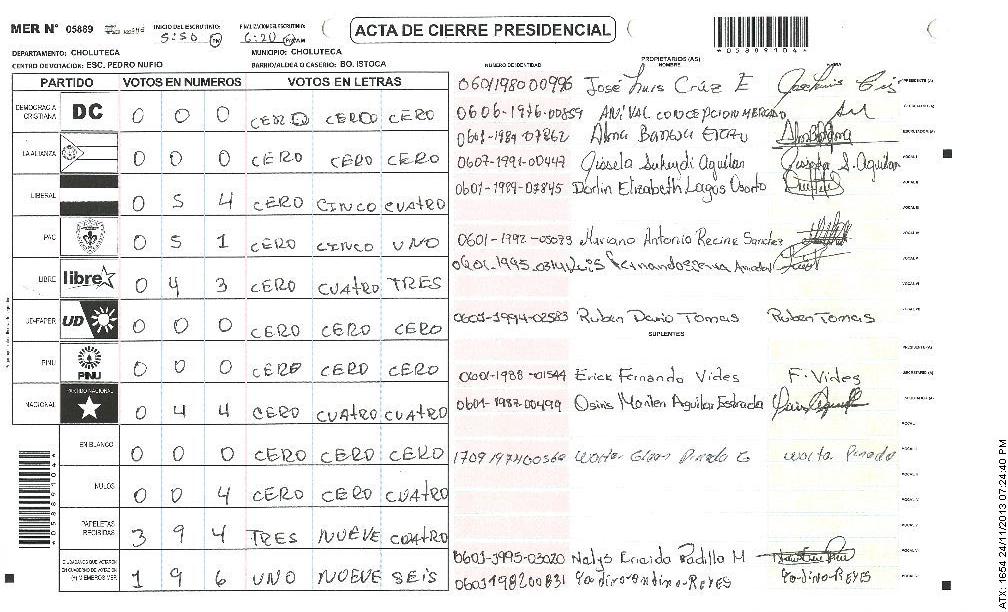 MER N° 05889 INICIO DEL ESCRUTINIO: 5:50 PM FINALIZACION ESCRUTINIO: 6:20 PM
ACTA DE CIERRE PRESIDENCIAL
*05889104*
DEPARTAMENTO: CHOLUTECA MUNICIPIO: CHOLUTECA
CENTRO DE VOTACION: ESC. PEDRO NUFIO BARRIO/ALDEA O CASERIO: BO. ISTOCA
NUMERO DE IDENTIDAD PROPIETARIOS (AS) NOMBRE FIRMA
PARTIDO VOTOS EN NUMEROS VOTOS EN LETRAS
DEMOCRACIA CRISTIANA DC 0 0 0 CERO CERO CERO
LA ALIANZA 0 0 0 CERO CERO CERO
LIBERAL 0 5 4 CERO CINCO CUATRO
PAC 0 5 1 CERO CINCO UNO
LIBRE libre 0 4 3 CERO CUATRO TRES
UD-FAPER UD 0 0 0 CERO CERO CERO
PINU PINU 0 0 0 CERO CERO CERO
NACIONAL PARTIDO NACIONAL 0 4 4 CERO CUATRO CUATRO
EN BLANCO 0 0 0 CERO CERO CERO
NULOS 0 0 4 CERO CERO CUATRO
PAPELETAS RECIBIDAS 3 9 4 TRES NUEVE CUATRO
CIUDADANOS QUE VOTARON EN CUADERNO DE VOTACION (+) MIEMBROS MER 1 9 6 UNO NUEVE SEIS
0601198000996 José Luis Crúz E PRESIDENTE (A)
0606-1976-00859 ANIVAL CONCEPCION MERCADO
0601-1984-07862 Alma
0607-1991-00447 Gissela Aguilar S. Aguilar
0601-1989-07845 Darlin Elizabeth Lagos Osorto
0601-1992-05073 Mariano Antonio Recine Sanchez
0601-1995 Luis Fernando Amador
0601-1994-02583 Ruben Dario Tomas Ruben Tomas
SUPLENTES
0601-1988-01544 Erick Fernando Vides F. Vides
0601-1987-00499 Osiris Aguilar Estrada
1709197400560 Pineda G Pineda
0601-1995-03020 Nelys Padilla M
0601198200831 REYES REYES
*05889104*
ATX: 1654 24/11/2013 07:24:40 PM